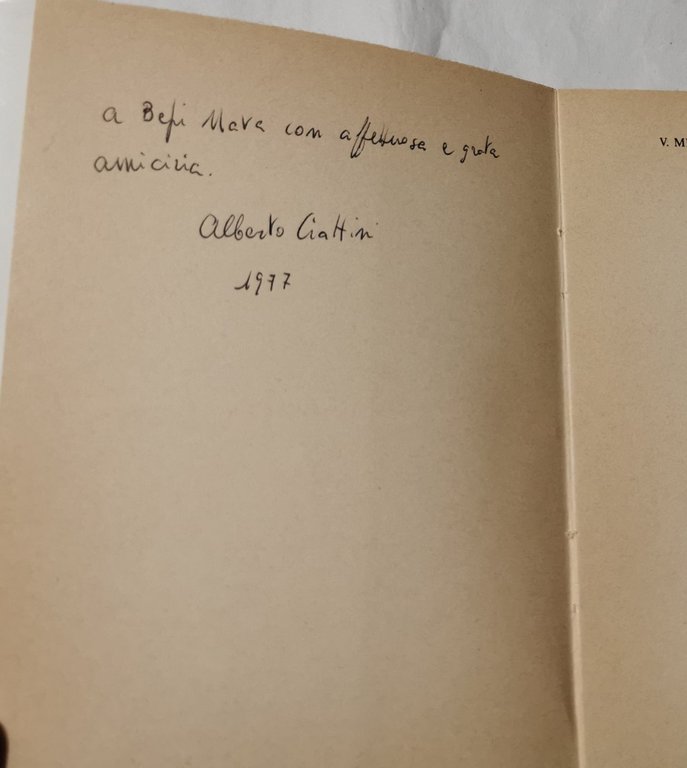 a Bepi Mara con affettuosa e grata
amicizia.
Alberto Ciattini
1977
V. M